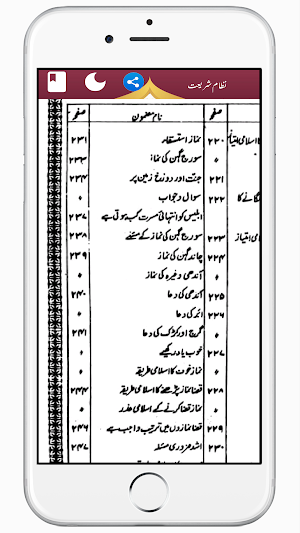 نظام شریعت
صفحہ نام مضمون صفحہ
اسلامی امتیاز ۲۲۰ نماز استسقاء ۲۳۱
۰ سورج گہن کی نماز ۲۳۳
۲۲۱ جنت اور دوزخ زمین پر ۲۳۴
لگانے کا ۲۲۲ سوال و جواب ۰
۰ ابلیس کو انتہائی مسرت کب ہوتی ہے ۲۳۷
می امتیاز ۲۲۳ سورج گہن کی نماز کے مسئلے ۲۳۸
۲۲۴ چاند گہن کی نماز ۲۳۹
۰ آندھی وغیرہ کی نماز ۰
۲۲۵ آندھی کی دعا ۲۴۰
۲۲۶ ابر کی دعا ۰
۰ گرج اور کڑک کی دعا ۲۴۱
۲۲۷ خوب یاد رکھیے ۰
۰ نماز خوف کا اسلامی طریقہ ۰
۲۲۸ قضا نماز پڑھنے کا اسلامی طریقہ ۲۴۴
۰ نماز قضا کرنے کے اسلامی عذر ۰
۲۲۹ قضا نمازوں میں ترتیب واجب ہے ۲۴۶
۲۳۰ اشد ضروری مسئلہ ۲۴۷